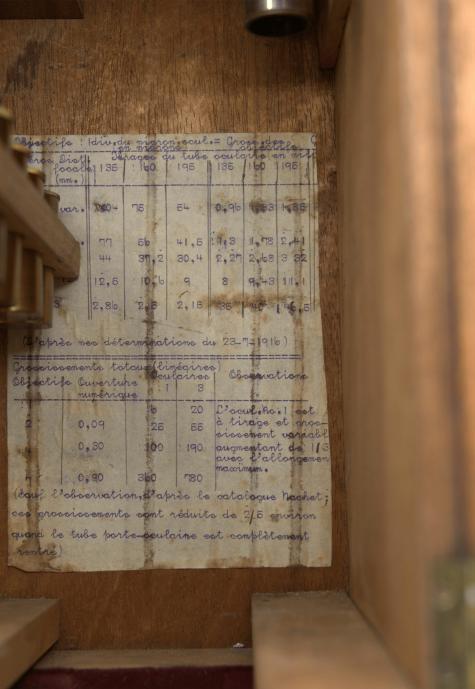 Objectifs : 1div.du micron.ocul.= Gross.des
en microns objectifs
Gross Dist. Tirages du tube oculaire en mill
focale 135 160 195 135 160 195
(mm.)
var. 104 75 54 0,96 1,33 1,85
77 56 41,5 1,3 1,78 2,41
44 37,2 30,4 2,27 2,68 3,32
12,5 10,6 9 8 9,43 11,1
2,86 2,5 2,15 35 40 46,5
(D'après mes déterminations du 23-7-1916)
Grossissements totaux(linéaires)
Objectifs Ouverture Oculaires Observations
numérique 1 3
6 20 L'ocul.No.1 est
2 0,09 25 55 à tirage et gros-
sissement variabl
0,30 100 190 augmentant de 1/3
avec l'allongemen
0,90 360 780 maximum.
(Sauf l'observation,d'après le catalogue Nachet;
ces grossissements sont réduits de 2/5 environ
quand le tube porte-oculaire est complètement
rentré)